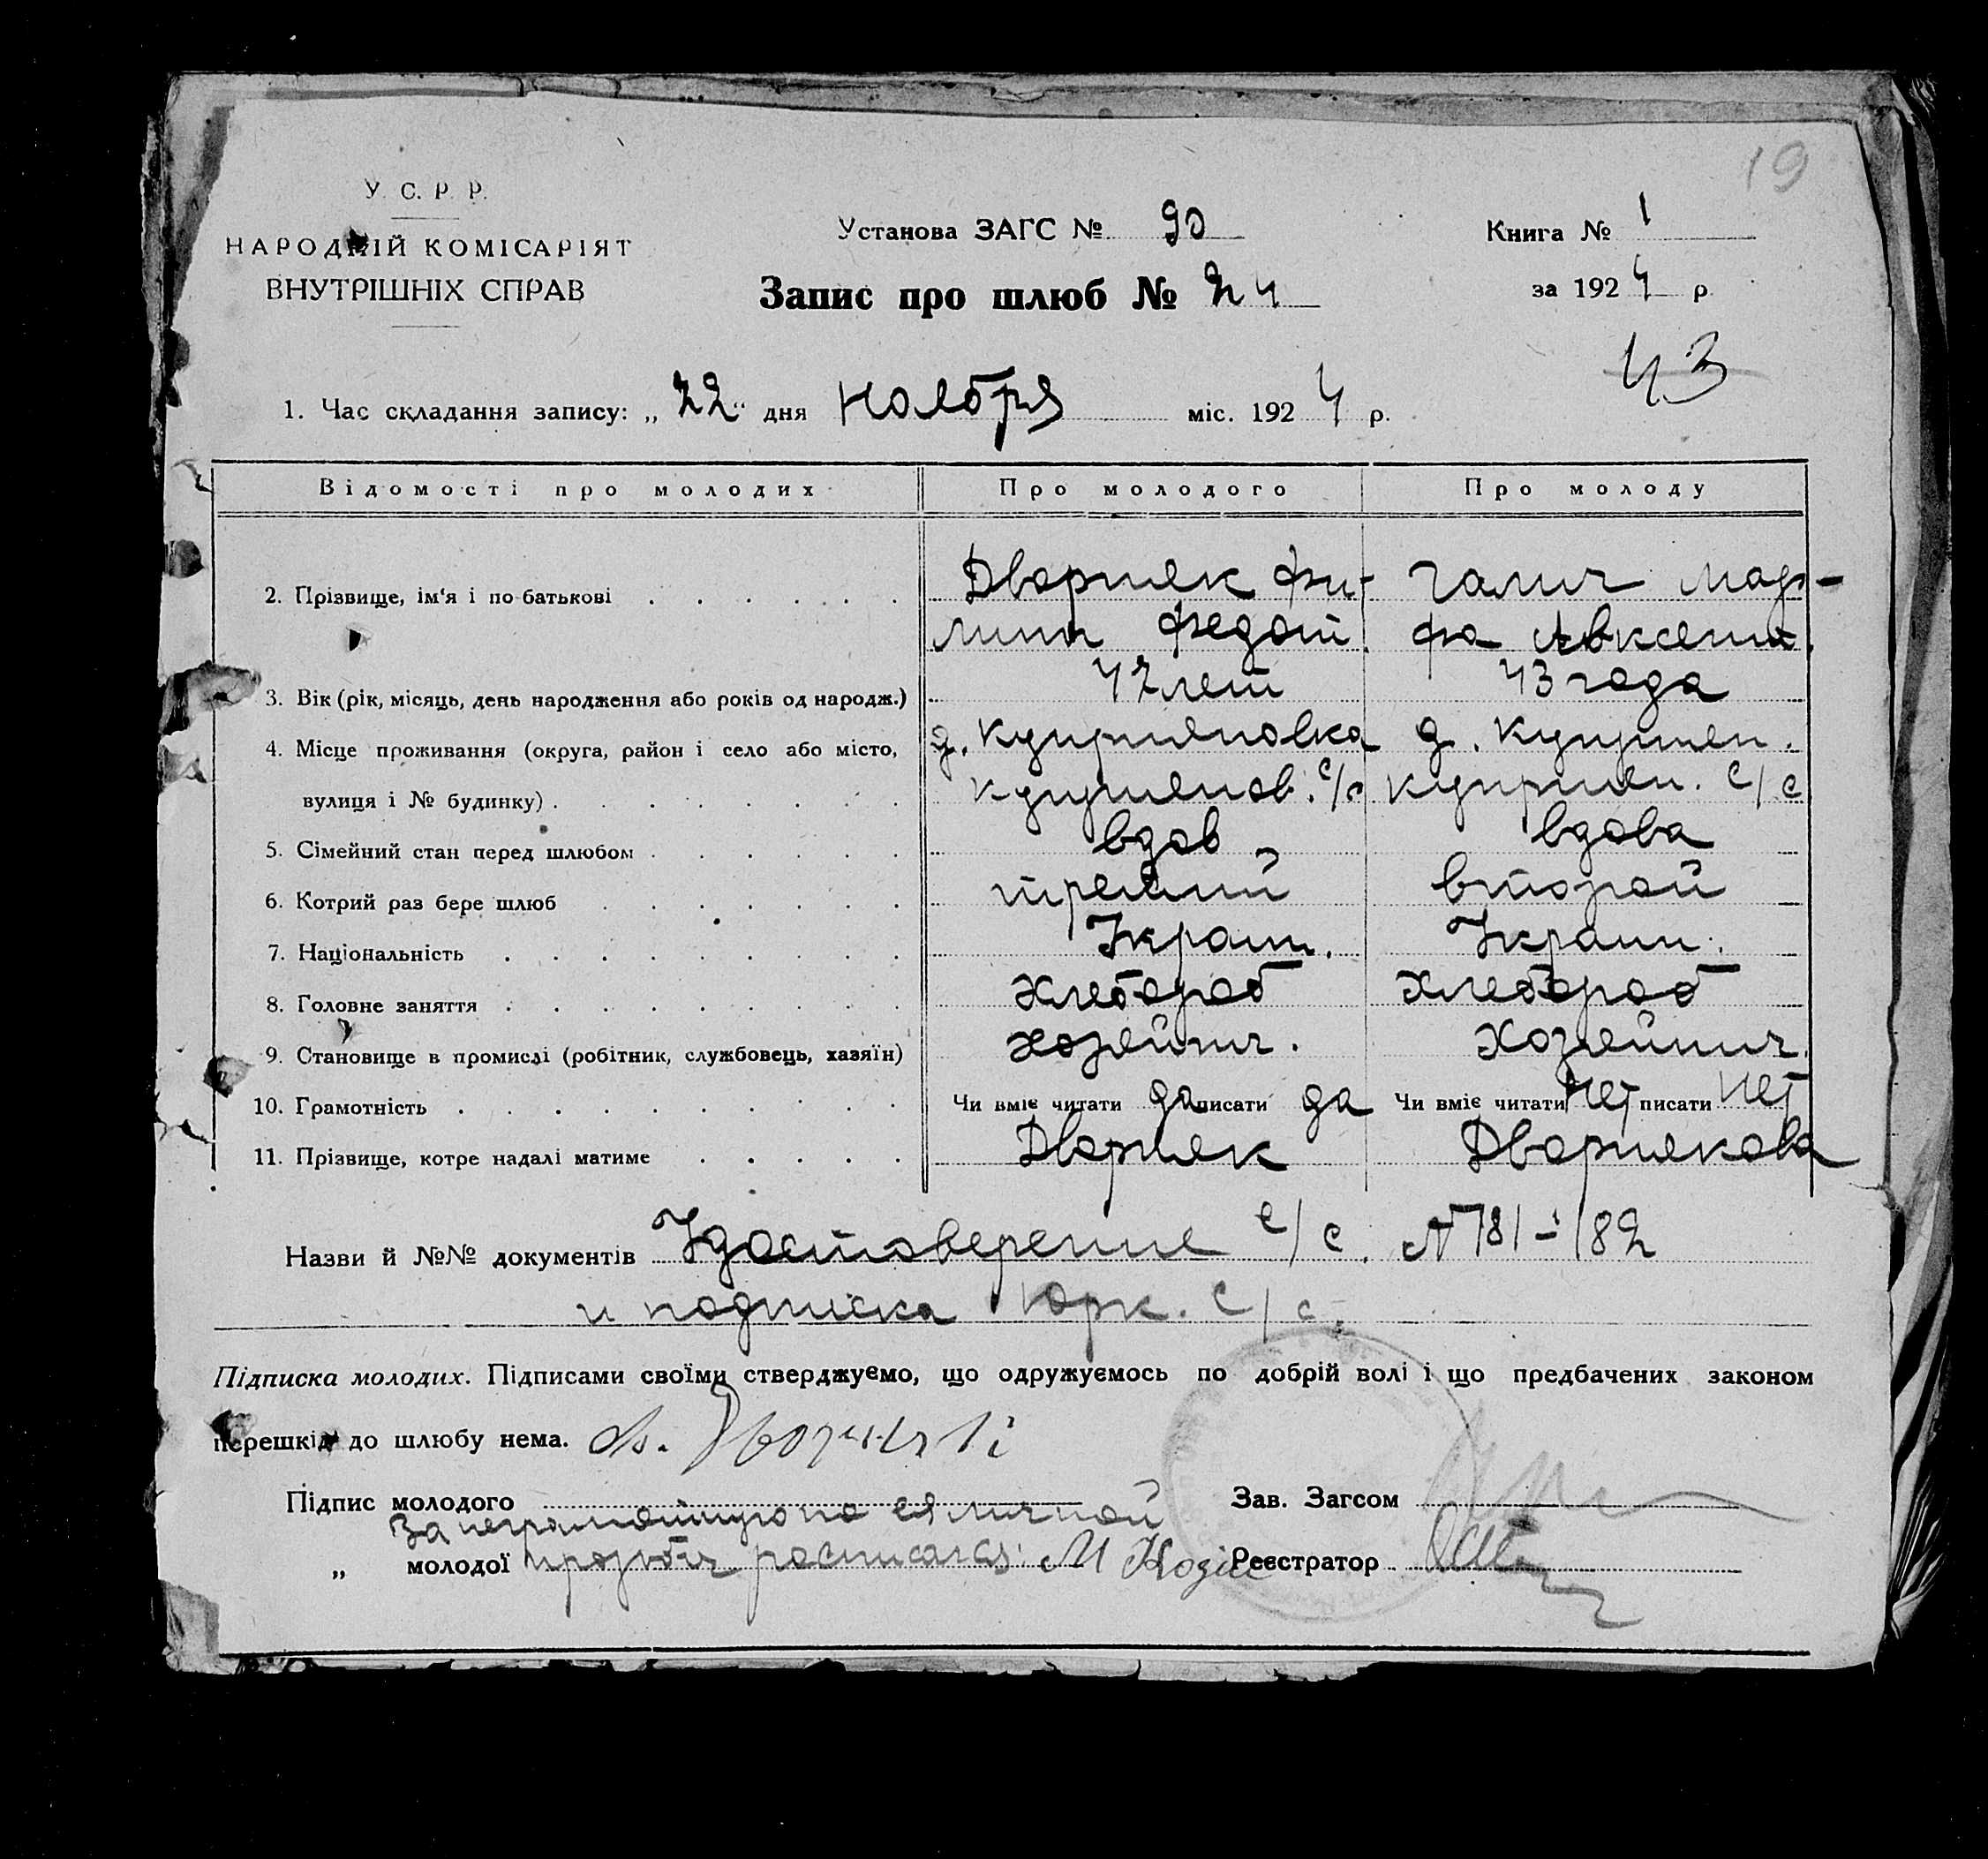 19
У. С. Р. Р.
НАРОДНІЙ КОМІСАРІЯТ
ВНУТРІШНІХ СПРАВ
Установа ЗАГС № 90
Книга № 1
Запис про шлюб № 24
за 1924 р.
43
1. Час складання запису: „22“ дня ноября міс. 1924 р.
Відомості про молодих Про молодого Про молоду
2. Прізвище, ім'я і по-батькові Дворняк Фи- Галич Мар-
липп Федот. фа Авксент.
3. Вік (рік, місяць, день народження або років од народж.) 42 лет 43 года
4. Місце проживання (округа, район і село або місто, д. Куприяновка д. Куприян.
вулиця і № будинку) Куприянов. с/с Куприян. с/с
5. Сімейний стан перед шлюбом вдов вдова
6. Котрий раз бере шлюб третий второй
7. Національність Украин. Украин.
8. Головне заняття хлебороб хлебороб
9. Становище в промислі (робітник, службовець, хазяїн) хозяйнич. хозяйнич.
10. Грамотність Чи вміє читати да писати да Чи вміє читати нет писати нет
11. Прізвище, котре надалі матиме Дворняк Дворнякова
Назви й №№ документів Удостоверение с/с. № 181-182
и подписка с/с.
Підписка молодих. Підписами своїми стверджуємо, що одружуємось по добрій волі і що предбачених законом
перешкід до шлюбу нема.
Підпис молодого Зав. Загсом
За неграмотную по ея личной
„ молодої прозьбе росписался М Реєстратор